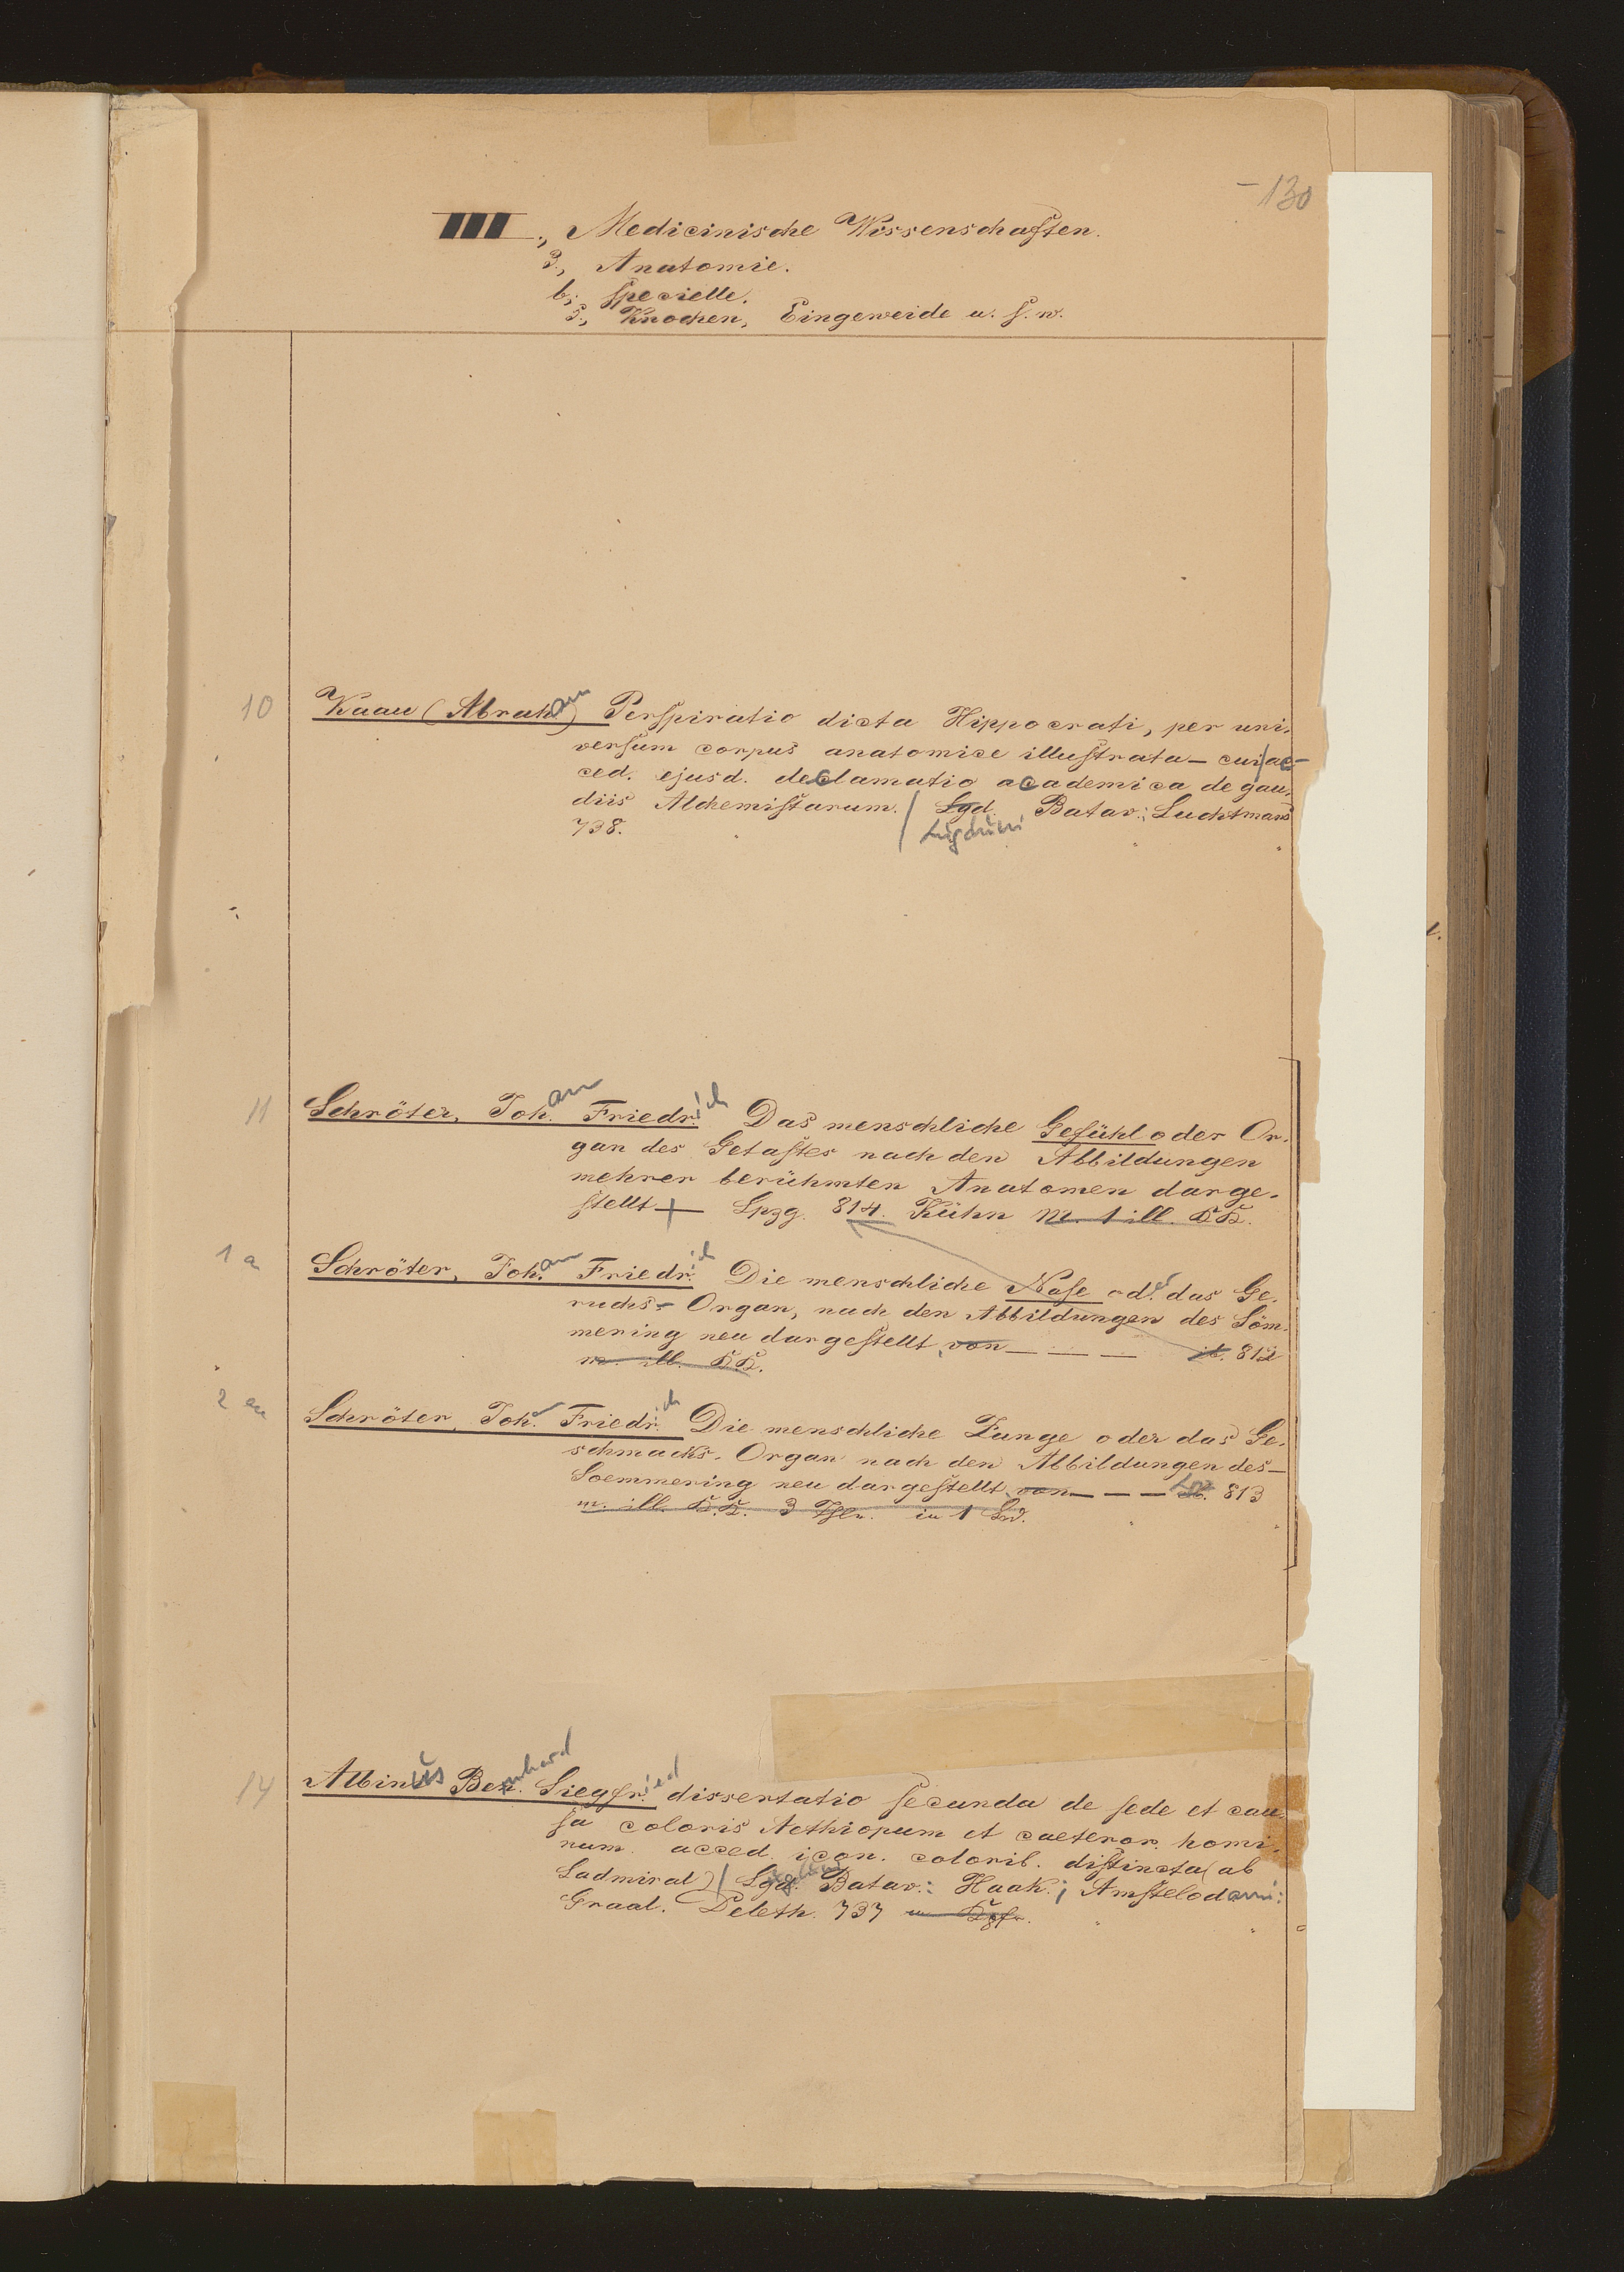 -130
III., Medicinische Wissenschaften.
3., Anatomie.
b; specielle.
5., Knochen, Eingeweide u. s. w.
10 Kaau (Abraham) Perspiratio dicta Hippocrati, per uni-
versum corpus anatomice illustrata – cui/ac-
ced. ejusd. declamatio academica de gau-
diis Alchemistarum. / Lgd. Batav.: Luchtmans
738. Lugduni
11 Schröter, Johann Friedrich Das menschliche Gefühl oder Or-
gan des Getastes nach den Abbildungen
mehrer berühmten Anatomen darge-
stellt – Lpzg. 814. Kühn m. 1 ill. KK.
1 a Schröter, Johann Friedrich Die menschliche Nase oder das Ge-
ruchs-Organ, nach den Abbildungen des Söm-
mering neu dargestellt, von – – – ib. 812
m. ill. KK.
2 an Schröter, Johann Friedrich Die menschliche Zunge oder das Ge-
schmacks-Organ nach den Abbildungen des –
Soemmering neu dargestellt von – – – 813
m. ill. K.K. 3 Thle. in 1 Bd.
14 Albinus Bernhard Siegfried dissertatio secunda de sede et cau-
sa coloris Aethiopum et caeteror. homi-
num. acced. icon. colorib. distincta (ab
Ladmiral) / Lgd. Batav.: Haak.; Amstelodami:
Graal. Deleth. 737 m Kpfr.